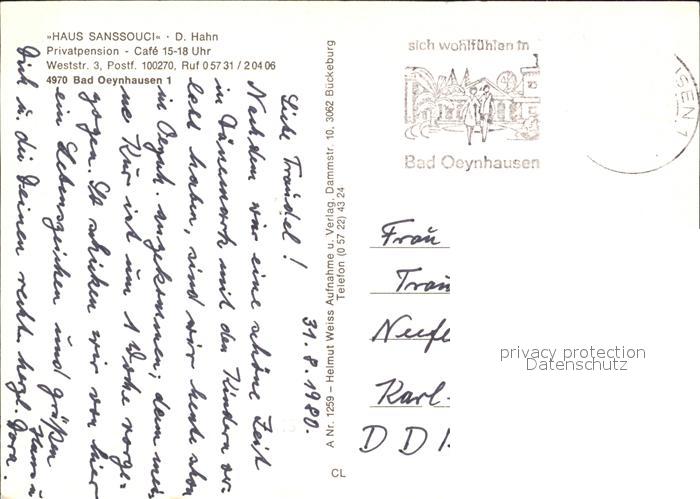 »HAUS SANSSOUCI« · D. Hahn
Privatpension - Café 15-18 Uhr
Weststr. 3, Postf. 100270, Ruf 0 57 31 / 2 04 06
4970 Bad Oeynhausen 1
31.8.1980.
Liebe Traudel!
Nachdem wir eine schöne Zeit
in Dänemark mit den Kindern ver-
lebt haben, sind wir heute schon
in Oeynh. angekommen; denn mei-
ne Kur ist um 1 Woche vorge-
zogen. So schicken wir von hier
ein Lebenszeichen und grüßen
Dich u. die Deinen recht herzl.
Hans u.
Dora.
A Nr. 1259 – Helmut Weiss Aufnahme u. Verlag, Dammstr. 10, 3062 Bückeburg
Telefon (0 57 22) 43 24
CL
sich wohlfühlen in
Bad Oeynhausen
SEN 1
Frau
Trau
Karl-
DDR
privacy protection
Datenschutz